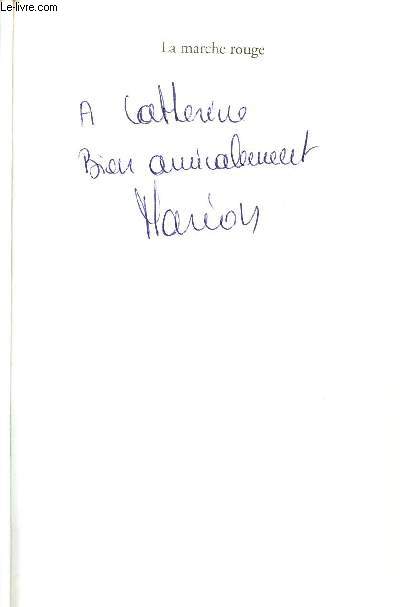 Le-livre.com
La marche rouge
A Catherine
Bien amicalement
Marion